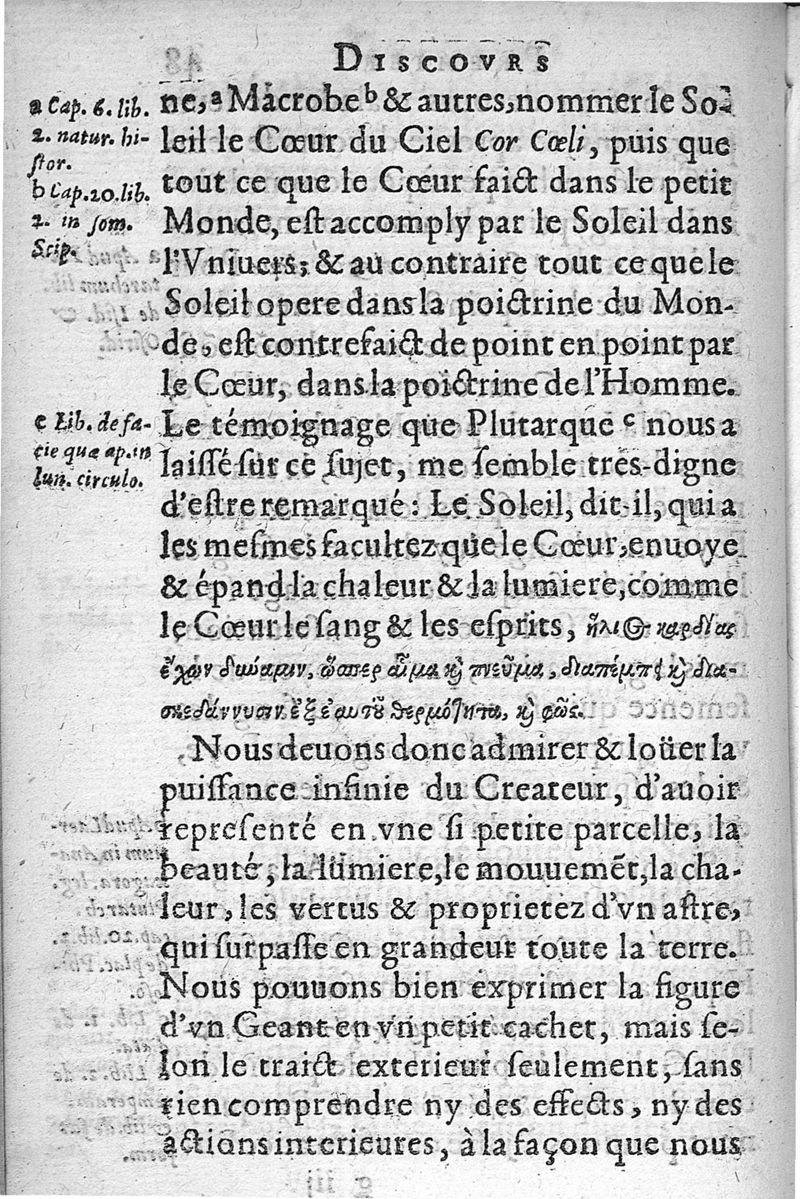 DISCOVRS
a Cap. 6. lib.
2. natur. hi-
ſtor.
b Cap. 20. lib.
2. in ſom.
Scip.
ne, a Macrobe b & autres, nommer le So-
leil le Cœur du Ciel Cor Cœli, puis que
tout ce que le Cœur faict dans le petit
Monde, eſt accomply par le Soleil dans
l'Vniuers; & au contraire tout ce que le
Soleil opere dans la poictrine du Mon-
de, eſt contrefaict de point en point par
le Cœur, dans la poictrine de l'Homme.
c Lib. de fa-
cie quæ ap. in
lun. circulo.
Le témoignage que Plutarque c nous a
laiſſé ſur ce ſujet, me ſemble tres-digne
d'eſtre remarqué: Le Soleil, dit-il, qui a
les meſmes facultez que le Cœur, enuoye
& épand la chaleur & la lumiere, comme
le Cœur le ſang & les eſprits, ἥλιος καρδίας
ἔχων δύναμιν, ὥσπερ αἷμα καὶ πνεῦμα, διαπέμπει καὶ δια-
σκεδάννυσιν ἐξ ἑαυτοῦ θερμότητα, καὶ φῶς.
Nous deuons donc admirer & loüer la
puiſſance infinie du Createur, d'auoir
repreſenté en vne ſi petite parcelle, la
beauté, la lumiere, le mouuemẽt, la cha-
leur, les vertus & proprietez d'vn aſtre,
qui ſurpaſſe en grandeur toute la terre.
Nous pouuons bien exprimer la figure
d'vn Geant en vn petit cachet, mais ſe-
lon le traict exterieur ſeulement, ſans
rien comprendre ny des effects, ny des
actions interieures, à la façon que nous